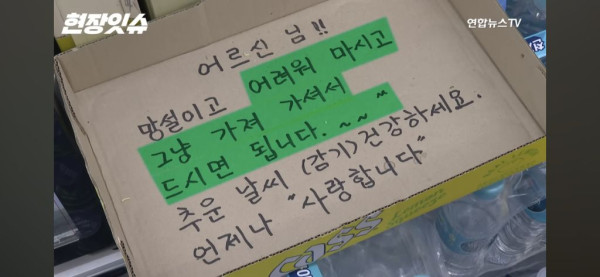 현장잇슈
연합뉴스TV
어르신 님!!
망설이고 어려워 마시고
그냥 가져 가셔서
드시면 됩니다.~~~
추운 날씨 (감기) 건강하세요.
언제나 "사랑합니다"
CASS